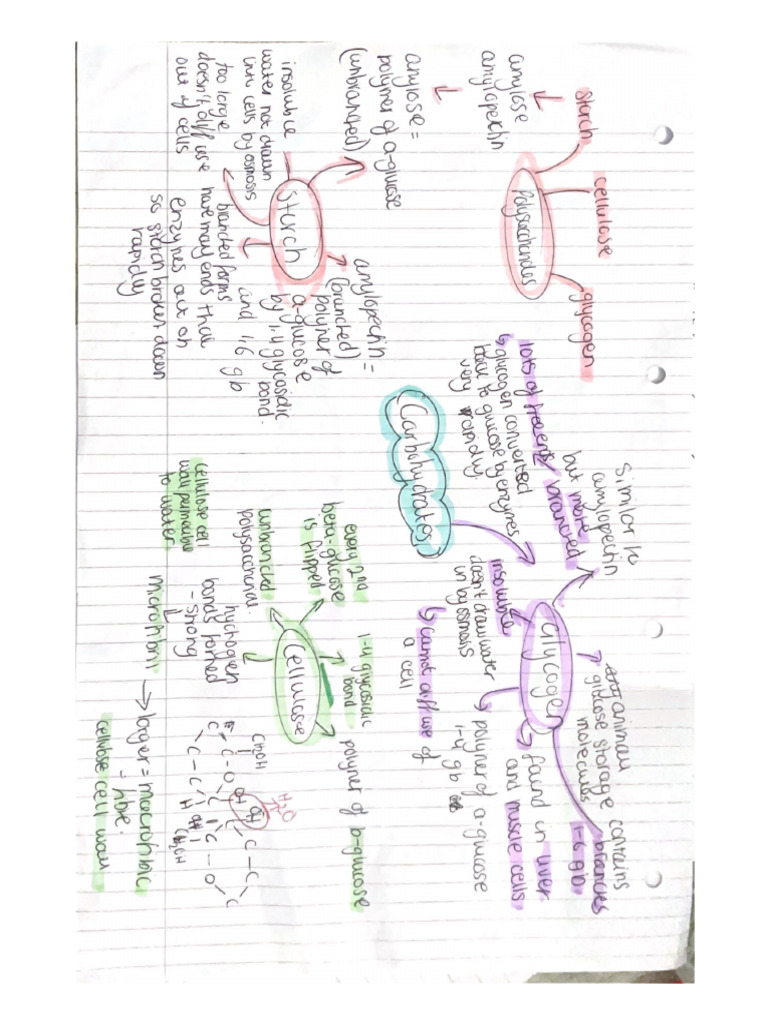 Polysaccharides
starch
cellulose
glycogen
amylose
amylopectin
Starch
amylose =
polymer of a-glucose
(unbranched)
amylopectin =
(branched)
polymer of
a-glucose
by 1,4 glycosidic
bond.
and 1,6 gb
insoluble
water not drawn
into cells by osmosis
too large
doesn't diffuse
out of cells
branched forms
have many ends that
enzymes act on
so starch broken down
rapidly
Carbohydrates
Glycogen
similar to
amylopectin
but more
branched
lots of
branched
glycogen converted
back to glucose by enzymes
very rapidly
animal
glucose storage
molecules
contains
branches
1-6 gb
found in liver
and muscle cells
polymer of a-glucose
1-4 gb
insoluble
doesn't draw water
in by osmosis
cannot diffuse of
a cell
Cellulose
every 2nd
beta-glucose
is flipped
1-4 glycosidic
bond
polymer of b-glucose
unbranched
polysaccharide
hydrogen
bonds formed
- strong
cellulose cell
wall permeable
to water
microfibril → larger = macrofibril
= fibre.
cellulose cell wall
H₂O
CH₂OH
OH
OH
CH₂OH